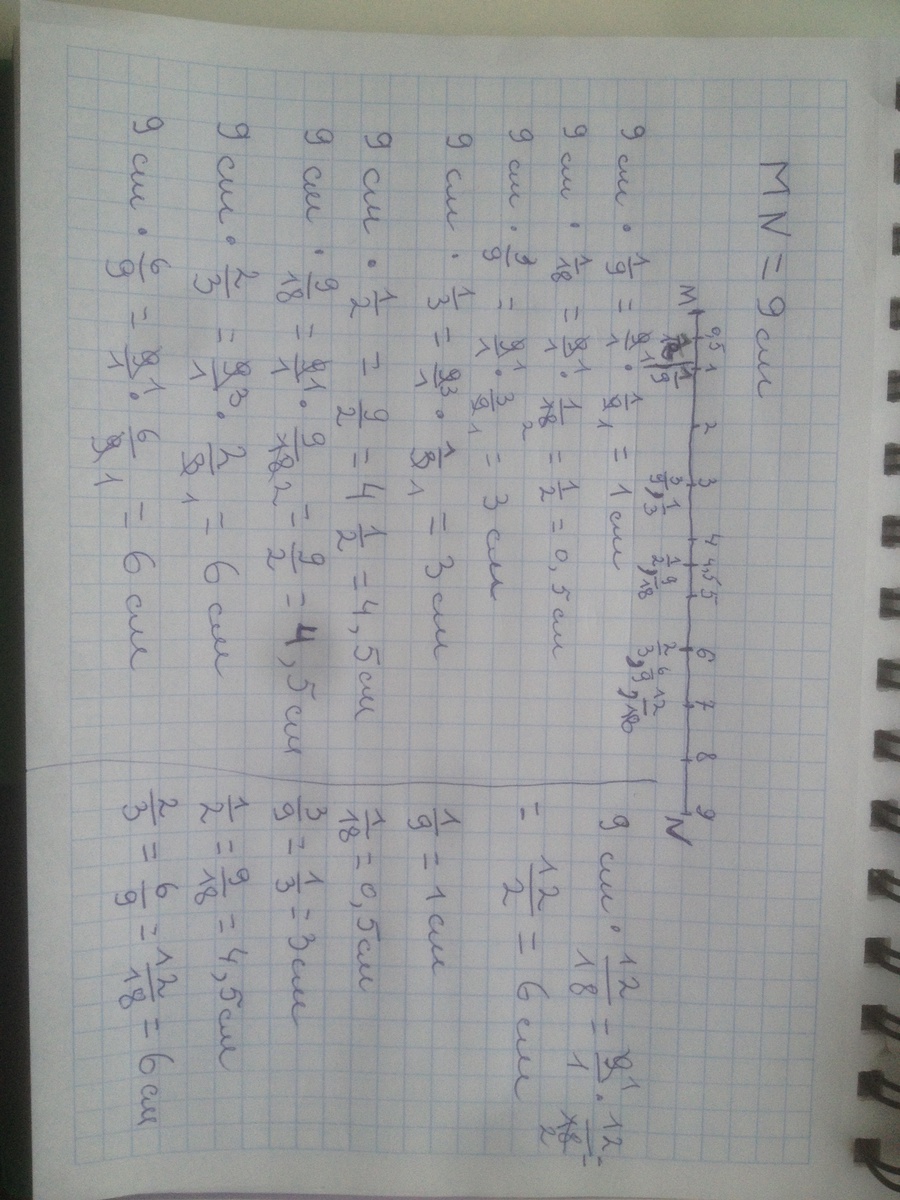 MN = 9 см
0,5 1 2 3 4 4,5 5 6 7 8 9
M N
1/18, 1/9 3/9, 1/3 1/2, 9/18 2/3, 6/9, 12/18
9 см · 1/9 = 9/1 · 1/9 = 1 см
9 см · 1/18 = 9/1 · 1/18 = 1/2 = 0,5 см
9 см · 3/9 = 9/1 · 3/9 = 3 см
9 см · 1/3 = 9/1 · 1/3 = 3 см
9 см · 1/2 = 9/2 = 4 1/2 = 4,5 см
9 см · 9/18 = 9/1 · 9/18 = 9/2 = 4,5 см
9 см · 2/3 = 9/1 · 2/3 = 6 см
9 см · 6/9 = 9/1 · 6/9 = 6 см
9 см · 12/18 = 9/1 · 12/18 =
= 12/2 = 6 см
1/9 = 1 см
1/18 = 0,5 см
3/9 = 1/3 = 3 см
1/2 = 9/18 = 4,5 см
2/3 = 6/9 = 12/18 = 6 см